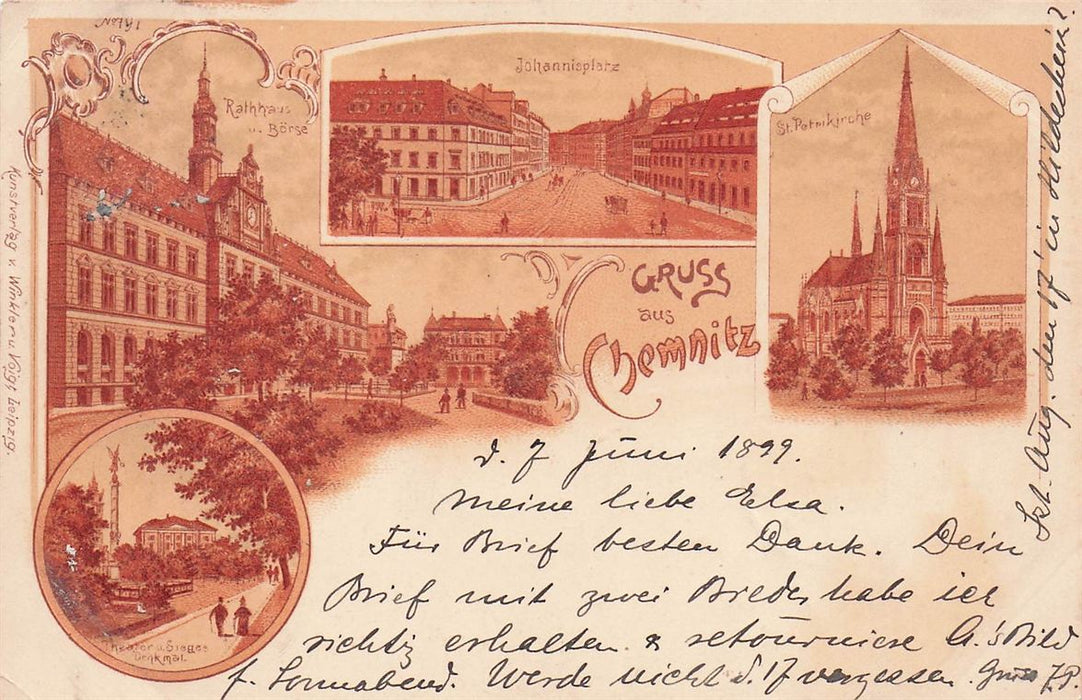 No 741
Rathhaus
u. Börse
Johannisplatz
St. Petrikirche
GRUSS
aus
Chemnitz
Theater u. Sieges
Denkmal.
Kunstverlag v. Winkler u. Voigt Leipzig.
d. 7 Juni 1899.
Meine liebe Elsa.
Für Brief besten Dank. Dein
Brief mit zwei Bilder habe ich
richtig erhalten. & retourniere A.'s Bild
f. Sonnabend. Werde nicht d. 17 vergessen. Gruss
Aug. den 17' in Hildesheim?